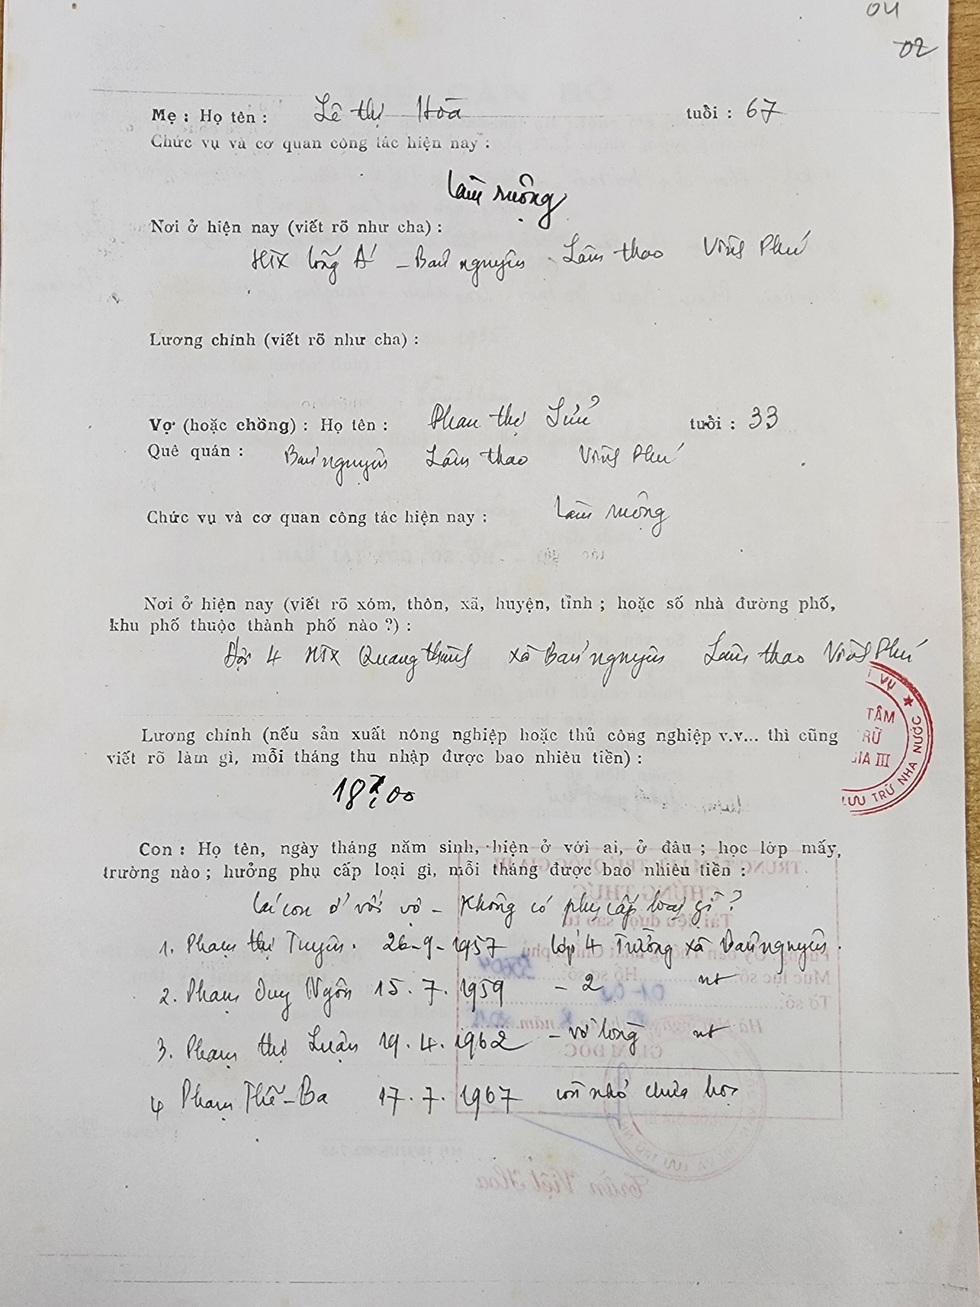 04
02
Mẹ : Họ tên : Lê thị Hoà tuổi : 67
Chức vụ và cơ quan công tác hiện nay :
Làm ruộng
Nơi ở hiện nay (viết rõ như cha) :
HTX - Lâm thao Vĩnh Phú
Lương chính (viết rõ như cha) :
Vợ (hoặc chồng) : Họ tên : Phan thị Sửu tuổi : 33
Quê quán : Bản nguyên Lâm thao Vĩnh Phú
Chức vụ và cơ quan công tác hiện nay : Làm ruộng
Nơi ở hiện nay (viết rõ xóm, thôn, xã, huyện, tỉnh ; hoặc số nhà đường phố,
khu phố thuộc thành phố nào ?) :
Đội 4 HTX Quang thành xã Bản nguyên Lâm thao Vĩnh Phú
Lương chính (nếu sản xuất nông nghiệp hoặc thủ công nghiệp v.v... thì cũng
viết rõ làm gì, mỗi tháng thu nhập được bao nhiêu tiền) :
18đ,00
VỤ ★
TÂM
RỮ
GIA III
LƯU TRỮ NHÀ NƯỚC
Con : Họ tên, ngày tháng năm sinh, hiện ở với ai, ở đâu ; học lớp mấy,
trường nào ; hưởng phụ cấp loại gì, mỗi tháng được bao nhiêu tiền :
Các con ở với vợ - Không có phụ cấp loại gì ?
1. Phạm thị Tuyên. 26-9-1957 lớp 4 Trường xã Bản nguyên.
2. Phạm Duy Ngôn 15.7.1959 - 2 nt
3. Phạm thị Luận 19.4.1962 - vỡ lòng nt
4 Phạm Thế-Ba 17.7.1967 còn nhỏ chưa học